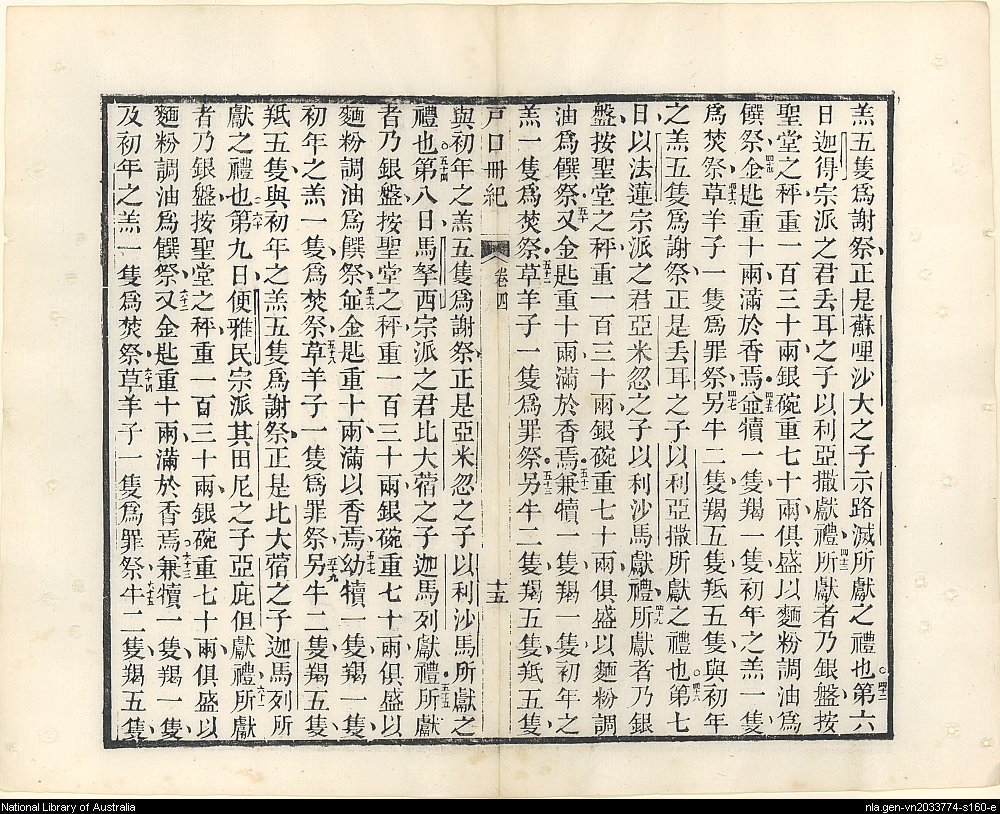 羔五隻爲謝祭正是蘇哩沙大之子示路滅所獻之禮也。四二第六
日迦得宗派之君丟耳之子以利亞撒獻禮四三所獻者乃銀盤按
聖堂之秤重一百三十兩銀碗重七十兩俱盛以麵粉調油爲
饌祭四四金匙重十兩滿於香焉四五並犢一隻羯一隻初年之羔一隻
爲焚祭四六草羊子一隻爲罪祭四七另牛二隻羯五隻羝五隻與初年
之羔五隻爲謝祭正是丟耳之子以利亞撒所獻之禮也。四八第七
日以法蓮宗派之君亞米忽之子以利沙馬獻禮四九所獻者乃銀
盤按聖堂之秤重一百三十兩銀碗重七十兩俱盛以麵粉調
油爲饌祭五十又金匙重十兩滿於香焉五十一兼犢一隻羯一隻初年之
羔一隻爲焚祭五十二草羊子一隻爲罪祭五十三另牛二隻羯五隻羝五隻
戸口冊紀 卷四 十五
與初年之羔五隻爲謝祭正是亞米忽之子以利沙馬所獻之
禮也。五十四第八日馬拏西宗派之君比大蓿之子迦馬列獻禮五十五所獻
者乃銀盤按聖堂之秤重一百三十兩銀碗重七十兩俱盛以
麵粉調油爲饌祭五十六並金匙重十兩滿以香焉五十七幼犢一隻羯一隻
初年之羔一隻爲焚祭五十八草羊子一隻爲罪祭五十九另牛二隻羯五隻
羝五隻與初年之羔五隻爲謝祭正是比大蓿之子迦馬列所
獻之禮也。六十第九日便雅民宗派其田尼之子亞庇但獻禮六十一所獻
者乃銀盤按聖堂之秤重一百三十兩銀碗重七十兩俱盛以
麵粉調油爲饌祭六十二又金匙重十兩滿於香焉六十三兼犢一隻羯一隻
及初年之羔一隻爲焚祭六十四草羊子一隻爲罪祭六十五牛二隻羯五隻
National Library of Australia
nla.gen-vn2033774-s160-e